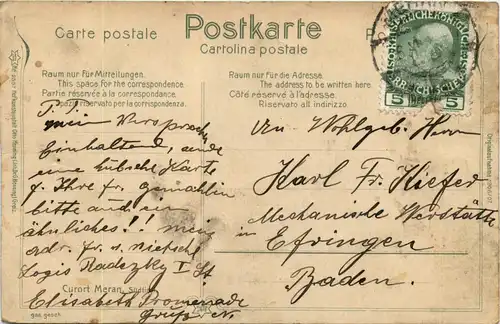 Carte postale
Postkarte
Cartolina postale
Raum nur für Mitteilungen.
This space for the correspondence.
Partie réservée à la correspondance.
Spazio riservato per la corrispondenza.
Raum nur für die Adresse.
The address to be written here.
Côté réservé à l'adresse.
Riservato all indirizzo.
5 5
mein Versprech
Einhaltend, sende
eine hübsche Karte
f. Ihre fr. gemahlin
bitte auch ein
ähnliches!! mein
adr. fr. v.
Logis Radezky I St
Elisabeth Promenade
Gruß
An Wohlgeb. Herrn
Karl Fr. Kiefer
Mechanische Werstätte
Efringen
Baden.
Curort Meran,
ges. gesch.